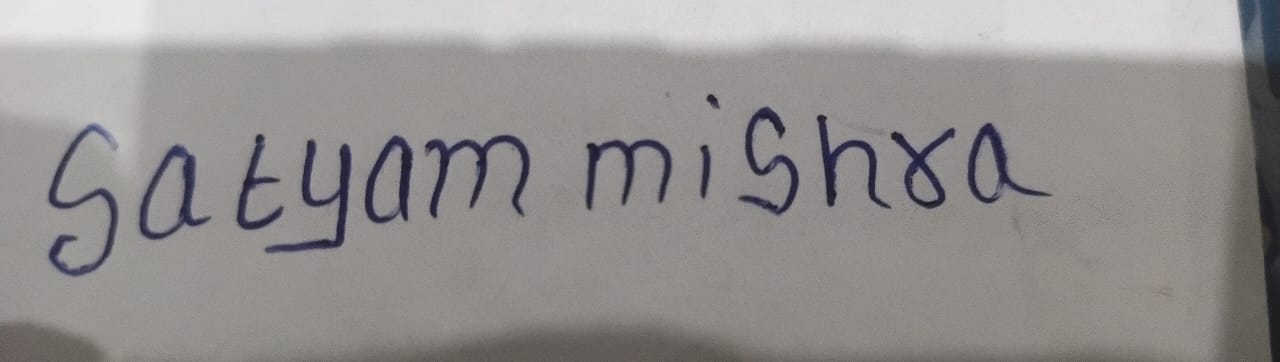 Satyam mishra